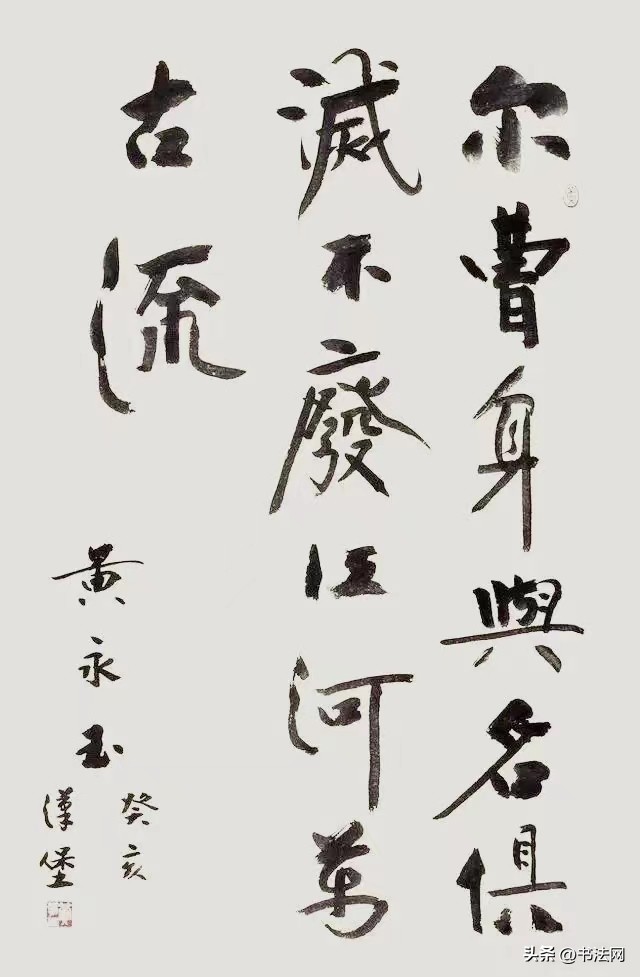 尔曹身與名俱
滅不廢江河萬
古流
黄永玉
癸亥
漢堡
头条 @书法网